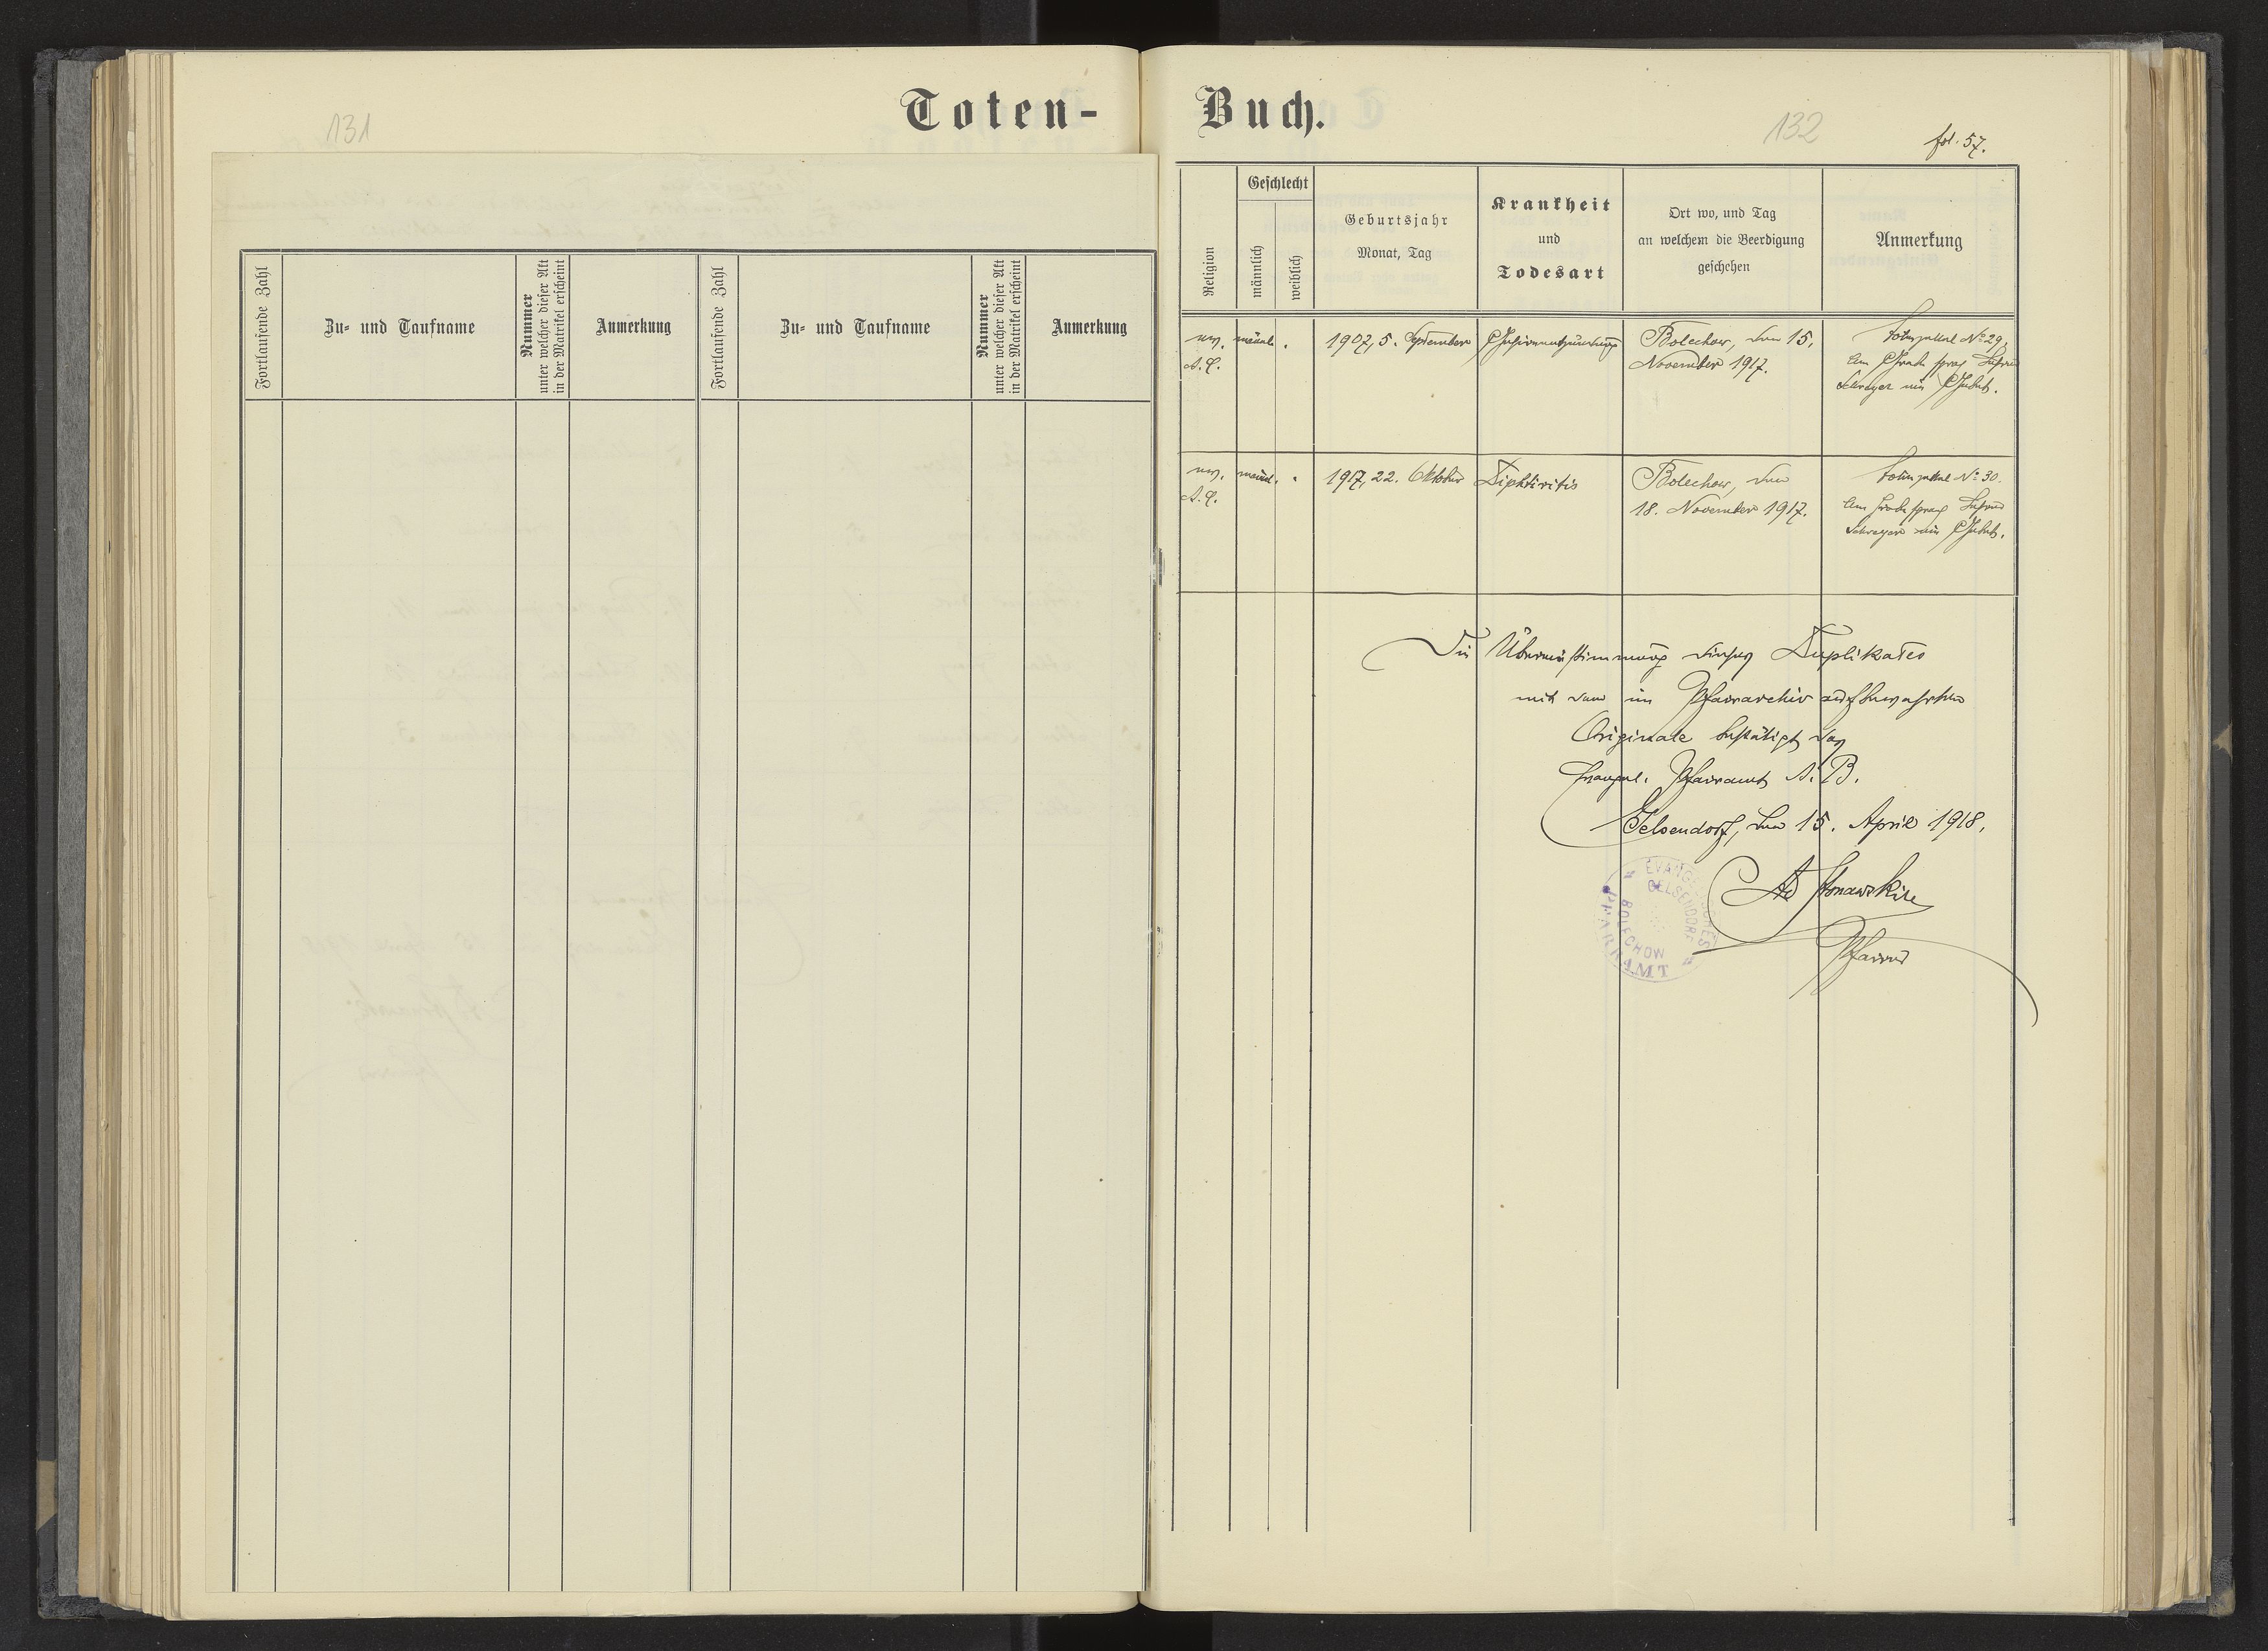 131
Toten-
Fortlaufende Zahl
Zu= und Taufname
Nummer
unter welcher dieser Akt
in der Matrikel erscheint
Anmerkung
Fortlaufende Zahl
Zu= und Taufname
Nummer
unter welcher dieser Akt
in der Matrikel erscheint
Anmerkung
Buch.
132
fol. 57.
Religion
Geschlecht
männlich
weiblich
Geburtsjahr
Monat, Tag
Krankheit
und
Todesart
Ort wo, und Tag
an welchem die Beerdigung
geschehen
Anmerkung
ev.
A.C.
männl.
1907, 5. September
Gehirnentzündung
Bolechow, den 15.
November 1917.
Totenzettel No 29.
Am Grabe sprach Lehrer
Schreyer ein Gebet.
ev.
A.C.
männl.
1917, 22. Oktober
Diphtiritis
Bolechow, den
18. November 1917.
Totenzettel No 30.
Am Grabe sprach Lehrer
Schreyer ein Gebet.
Die Übereinstimmung dieses Duplikates
mit dem im Pfarrarchiv aufbewahrten
Originale bestätigt das
Evangel. Pfarramt A. B.
Gelsendorf, den 15. April 1918.
EVANGELISCHES
PFARRAMT
GELSENDORF
BOLECHOW
Pfarrer